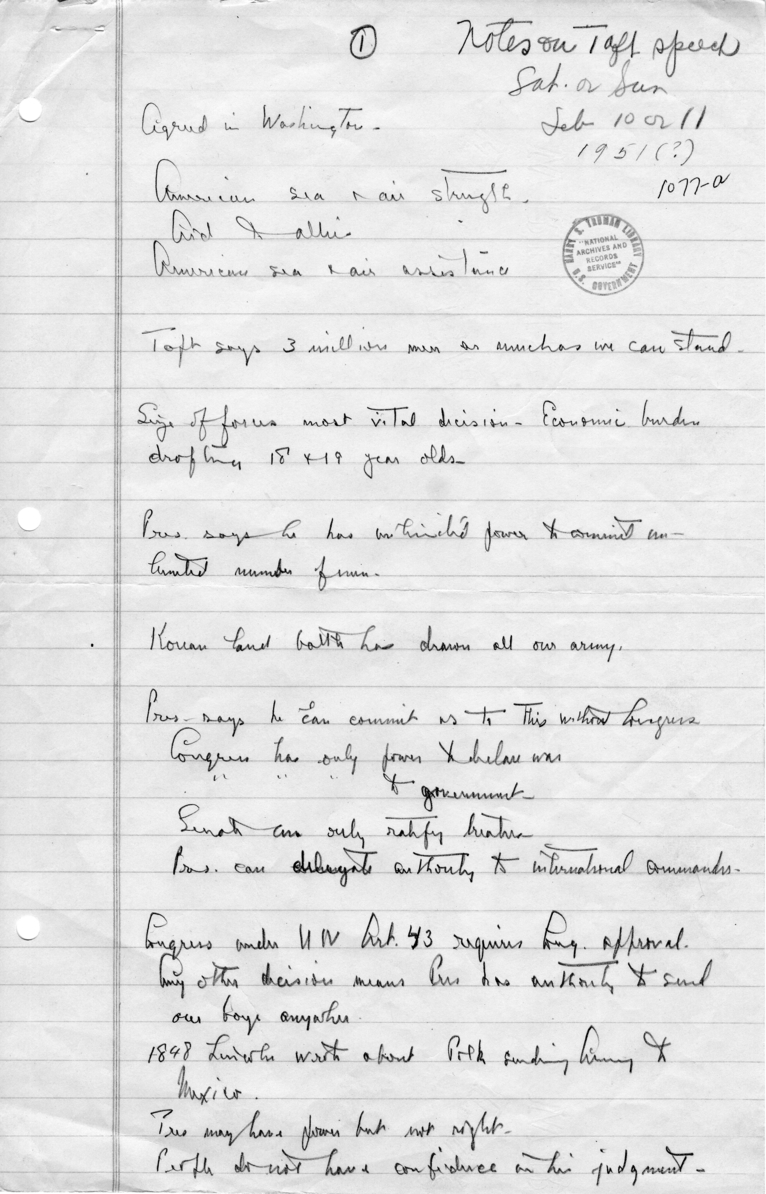 ① Notes on Taft speech
Sat. or Sun
Feb 10 or 11
1951(?)
1077-a
Agreed in Washington -
American sea & air strength.
Aid to allies
American sea & air assistance
HARRY S. TRUMAN LIBRARY
"NATIONAL ARCHIVES AND RECORDS SERVICE"
U.S. GOVERNMENT
Taft says 3 million men as much as we can stand -
Size of forces most vital decision - Economic burden
drafting 18 & 19 year olds -
Pres. says he has unlimited power to commit un-
limited number of men -
Korean land battle has drawn all our army.
Pres - says he can commit us to this without Congress
Congress has only power to declare war
" " " to government -
Senate can only ratify treaties
Pres. can delegate authority to international commanders -
Congress under UN Art. 43 requires Cong. approval.
Any other decision means Pres has authority to send
our boys anywhere.
1848 Lincoln wrote about Polk sending Army to
Mexico.
Pres may have power but not right -
People do not have confidence in his judgment -